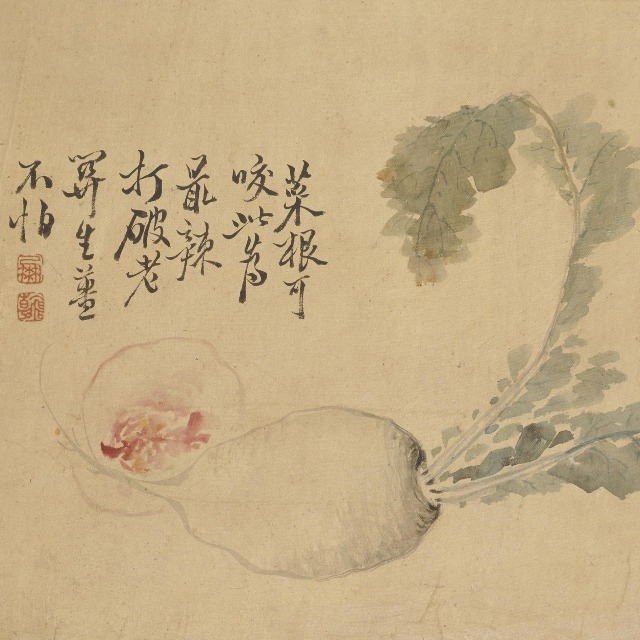 菜根可
咬此為
最辣
打破老
生薑
不怕